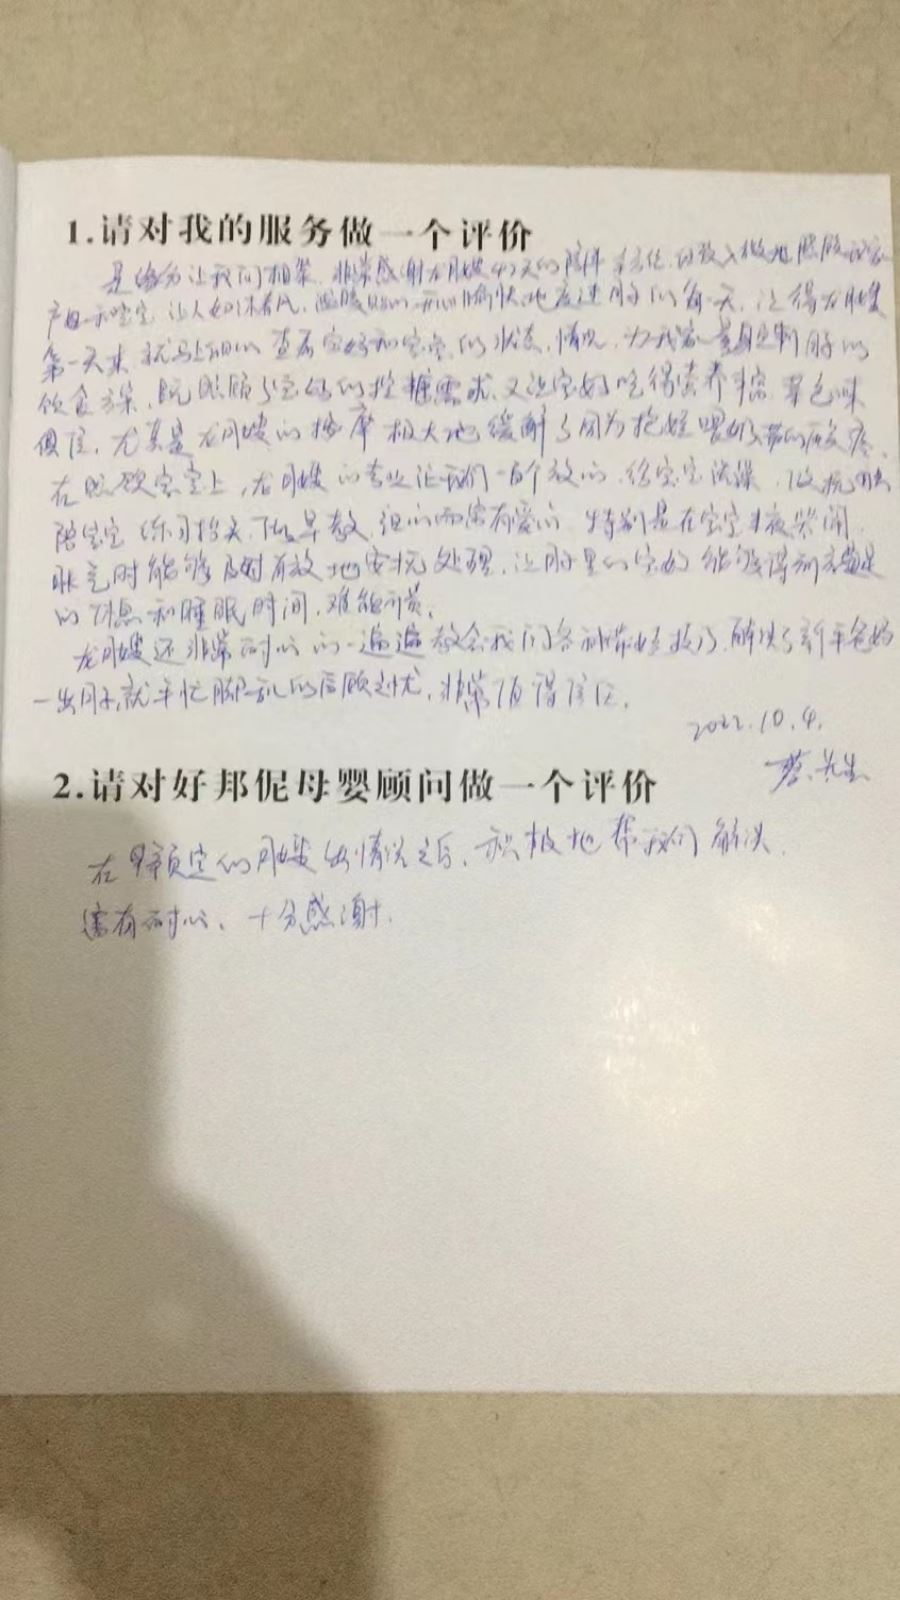 1.请对我的服务做一个评价
是缘分让我们相聚,非常感谢龙月嫂42天的陪伴,细致入微地照顾
产妇和宝宝,让人如沐春风,温暖愉快地度过月子的每一天,记得龙月嫂
第一天来,就马上细心查看宝妈和宝宝的状态,情况,为我家量身定制月子的
饮食方案,既照顾了宝妈的控糖需求,又让宝妈吃得营养丰富,菜色味
俱佳,尤其是龙月嫂的按摩极大地缓解了因为抱娃喂奶带的疼,
在照顾宝宝上,龙月嫂的专业让我们一百个放心,给宝宝洗澡,做抚触
陪宝宝练习抬头,做早教,细心而富有爱心,特别是在宝宝半夜哭闹
胀气时能够及时有效地安抚处理,让月子里的宝妈能够得到充足
的休息和睡眠时间,难能可贵。
龙月嫂还非常耐心的一遍遍教会我们各种带娃技巧,解决了新手爸妈
一出月子,就手忙脚乱的后顾之忧,非常值得信任。
2022.10.4.
蔡先生
2.请对好邦伲母婴顾问做一个评价
在预定的月嫂出情况之后,积极地帮我们解决,
富有耐心,十分感谢.